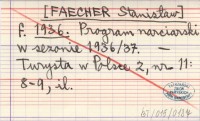 [FAECHER Stanisław]
F. 1936. Program narciarski
w sezonie 1936/37. —
Turysta w Polsce 2, nr 11:
8-9, il.